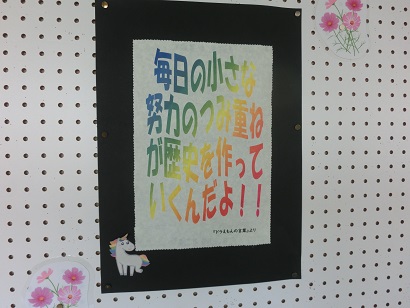 毎日の小さな
努力のつみ重ね
が歴史を作って
いくんだよ！！
『ドラえもんの言葉』より